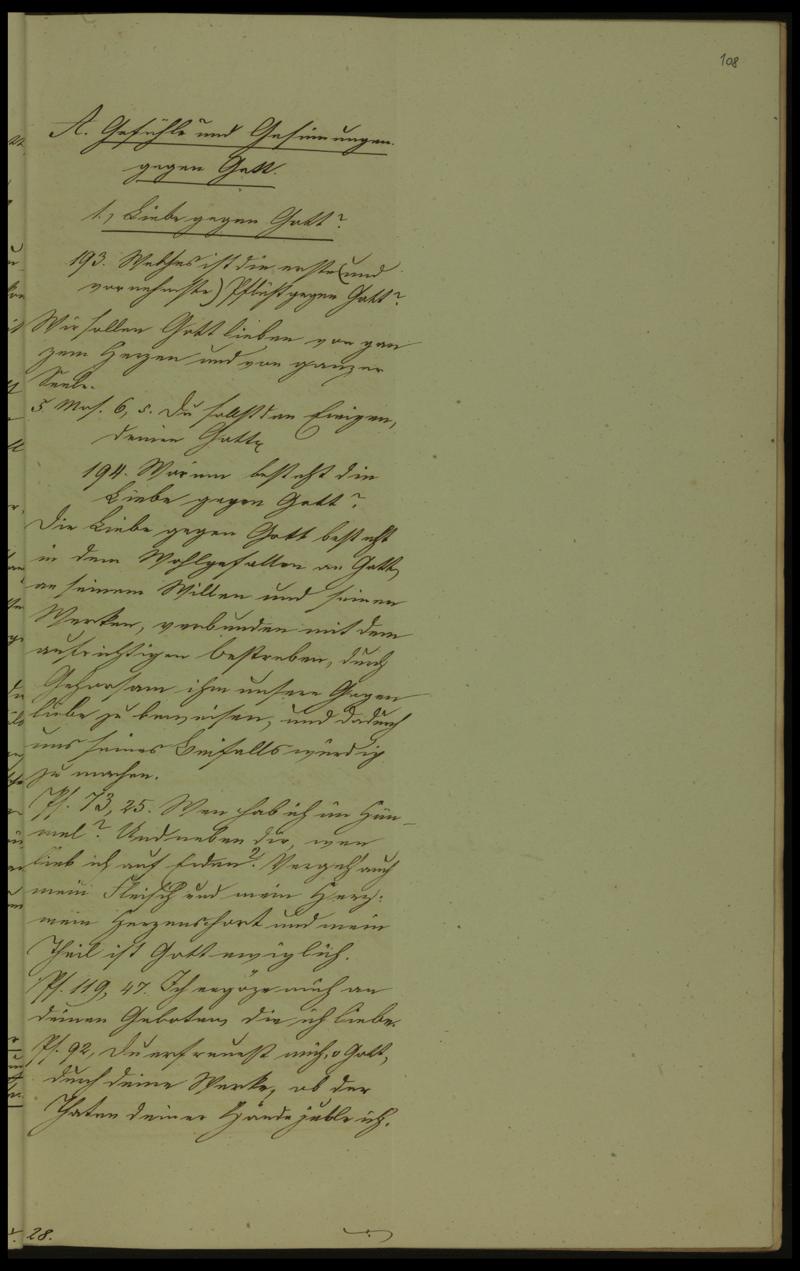 108
A. Gefühle und Gesinnungen
gegen Gott.
1., Liebe gegen Gott?
193. Welches ist die erste (und
vornehmste) Pflicht gegen Gott?
Wir sollen Gott lieben von gan
zem Herzen und von ganzer
Seele.
5 Mos. 6, 5. Du sollst den Ewigen,
deinen Gott
194. Worinn besteht die
Liebe gegen Gott?
Die Liebe gegen Gott besteht
in dem Wohlgefallen an Gott,
an seinem Willen und seinen
Werken, verbunden mit dem
aufrichtigen Bestreben, durch
Gehorsam ihm unsere Gegen
liebe zu beweisen, und dadurch
uns seines Beifalls würdig
zu machen.
Ps. 73, 25. Wen hab ich im Him-
mel? Und neben dir, wen
lieb ich auf Erden? Vergeh' auch
mein Fleisch und mein Herz:
mein Herzenshort und mein
Theil ist Gott ewiglich.
Ps. 119, 47. Ich ergöze mich an
deinen Geboten, die ich liebe.
Ps. 92, Du erfreuest mich, o Gott,
durch deine Werke, ob der
Thaten deiner Hände juble ich.
28.